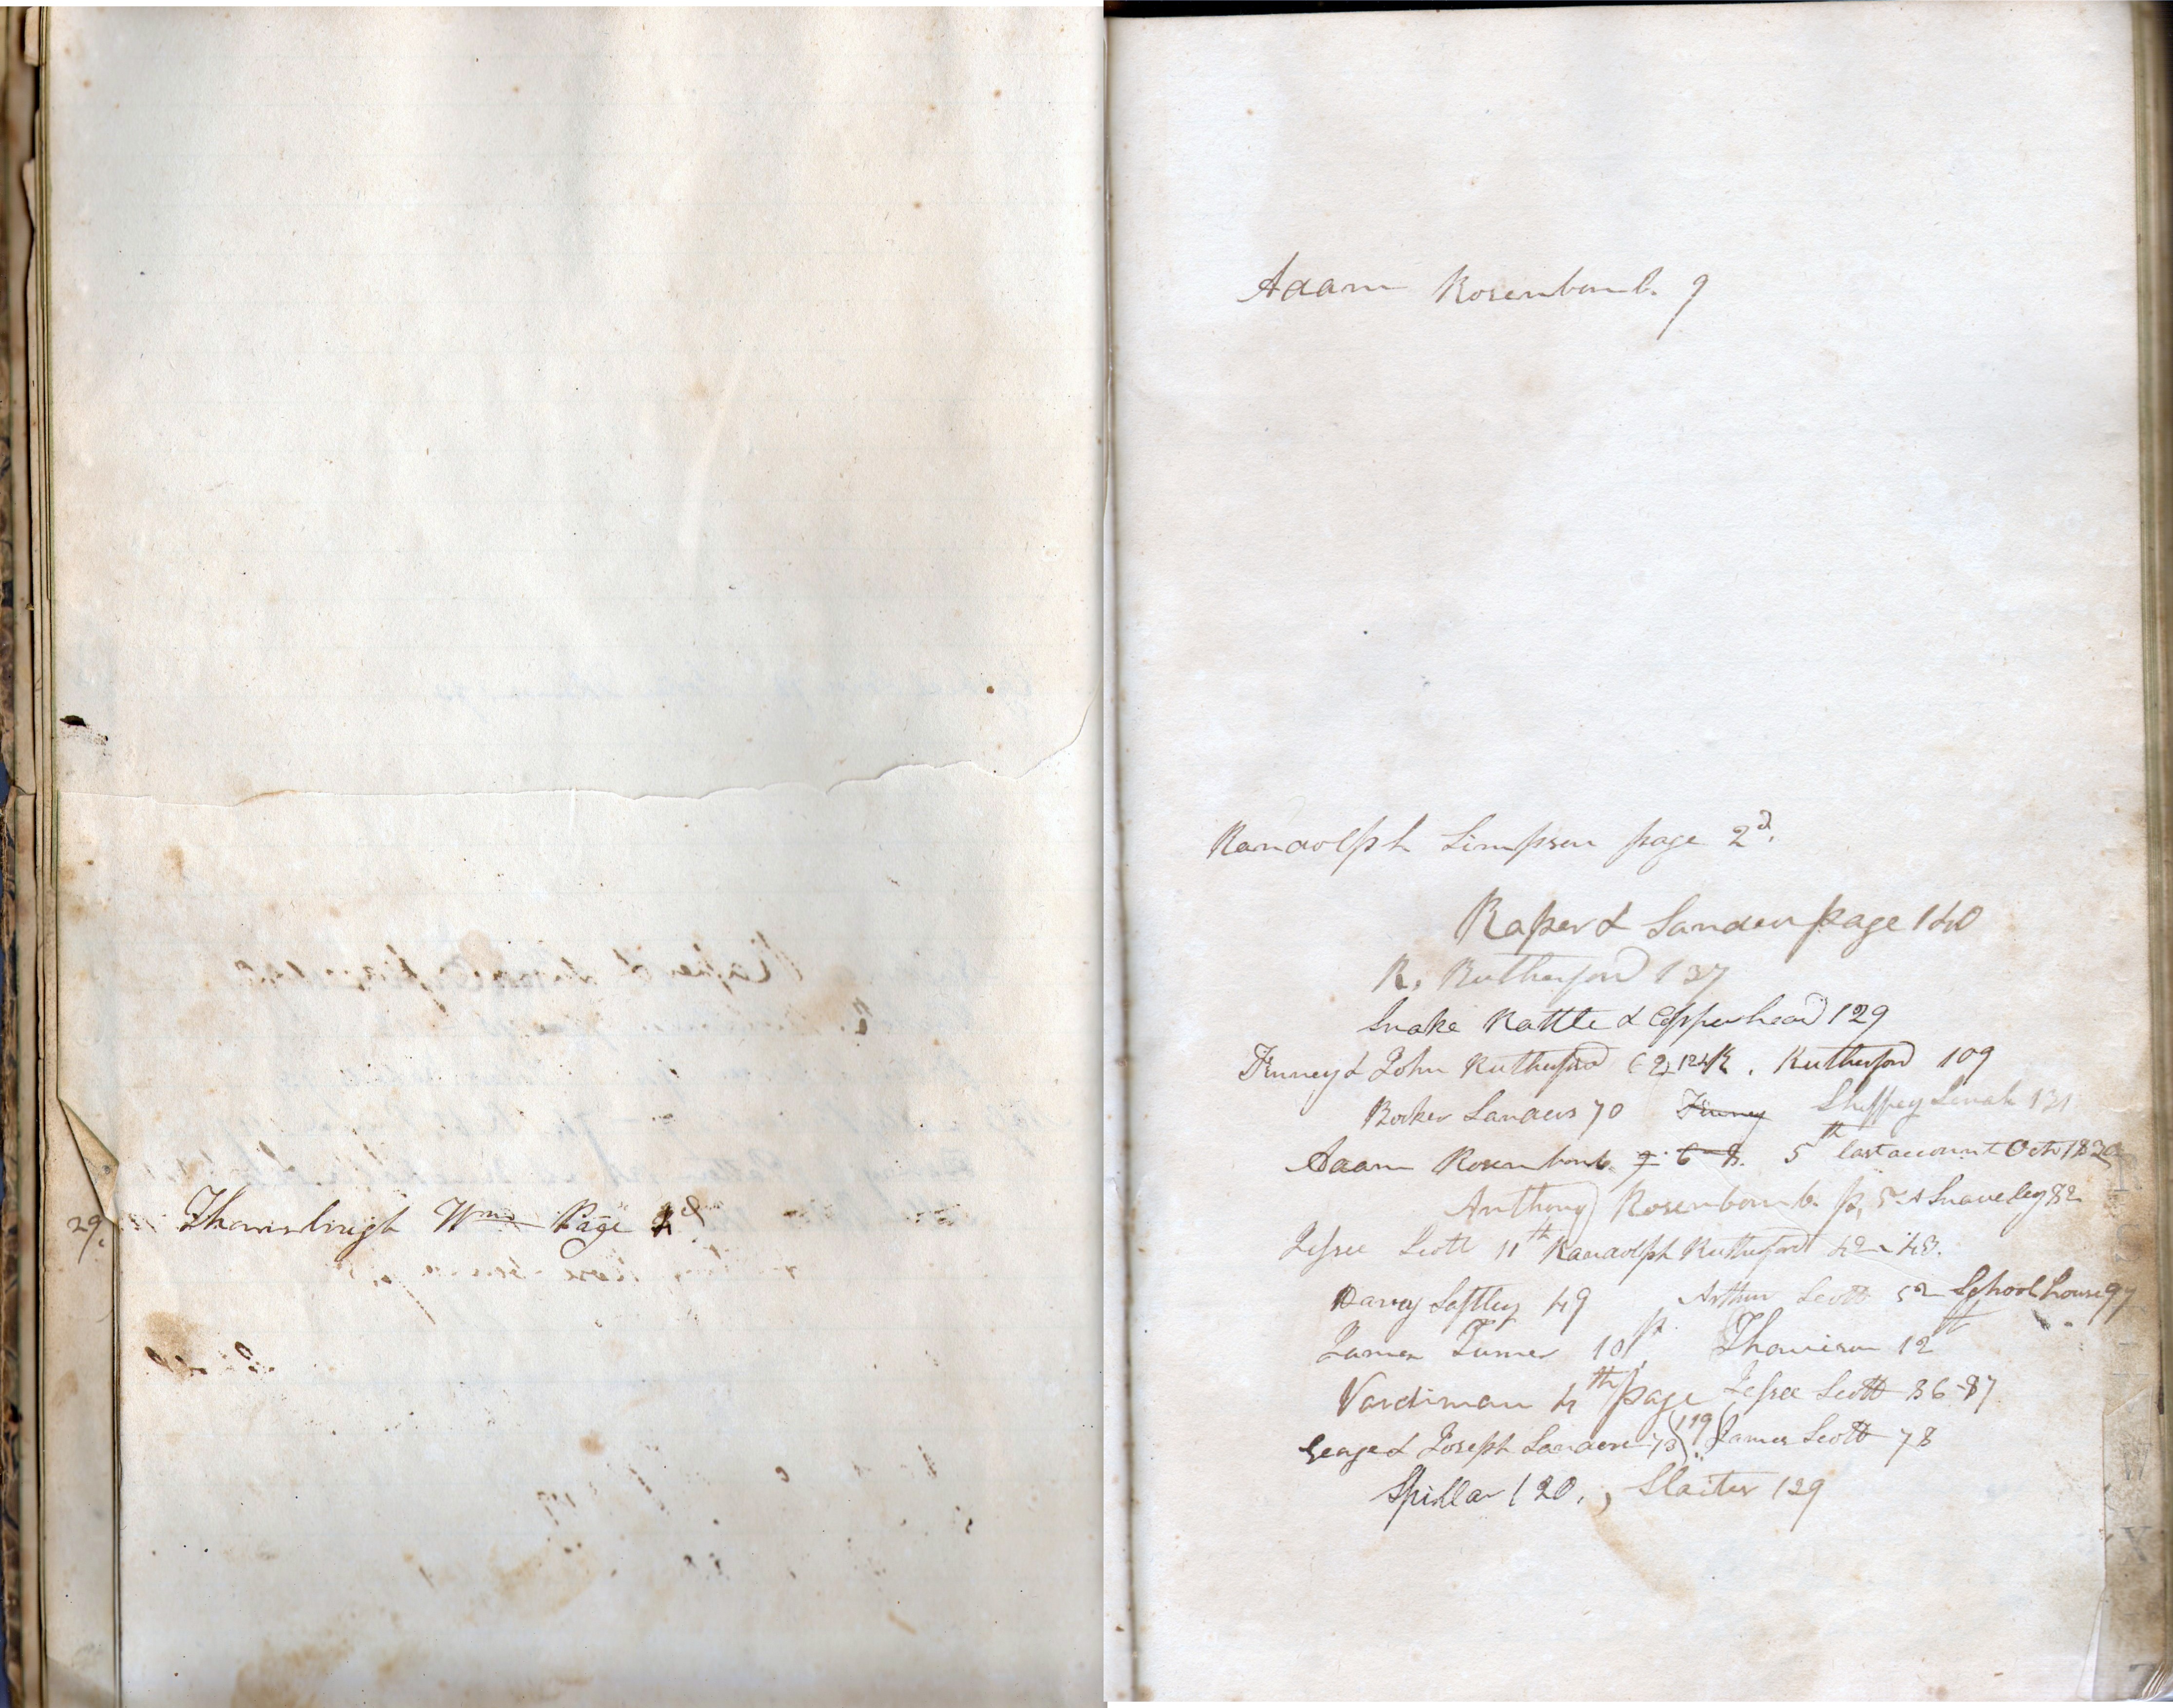 29.
Thornsbrugh Wm Page 2d
Adam Rosenbomb. 9
Randolph Simpson page 2d.
Raper & Sander page 140
R. Rutherford 137
Snake Rattle & Copperhead 129
Finney & John Rutherford 62 124 R. Rutherford 109
Booker Sanders 70 Finney Sheffey Senah 131
Adam Rosenbomb. 7. 6 8. 5th last account Octo 1830
Anthony Rosenbomb. p, 5. A Snaveley 82
Jessee Scott 11th Randolph Rutherford 42 & 43.
Davy Saftley 49 Arthur Scott 52 School house 97
James Turner 10 p. Thomison 12th
Vardiman 4th page Jessee Scott 86-87
George & Joseph Sanders 73 119 James Scott 78
Spillar 120., Slaiter 129